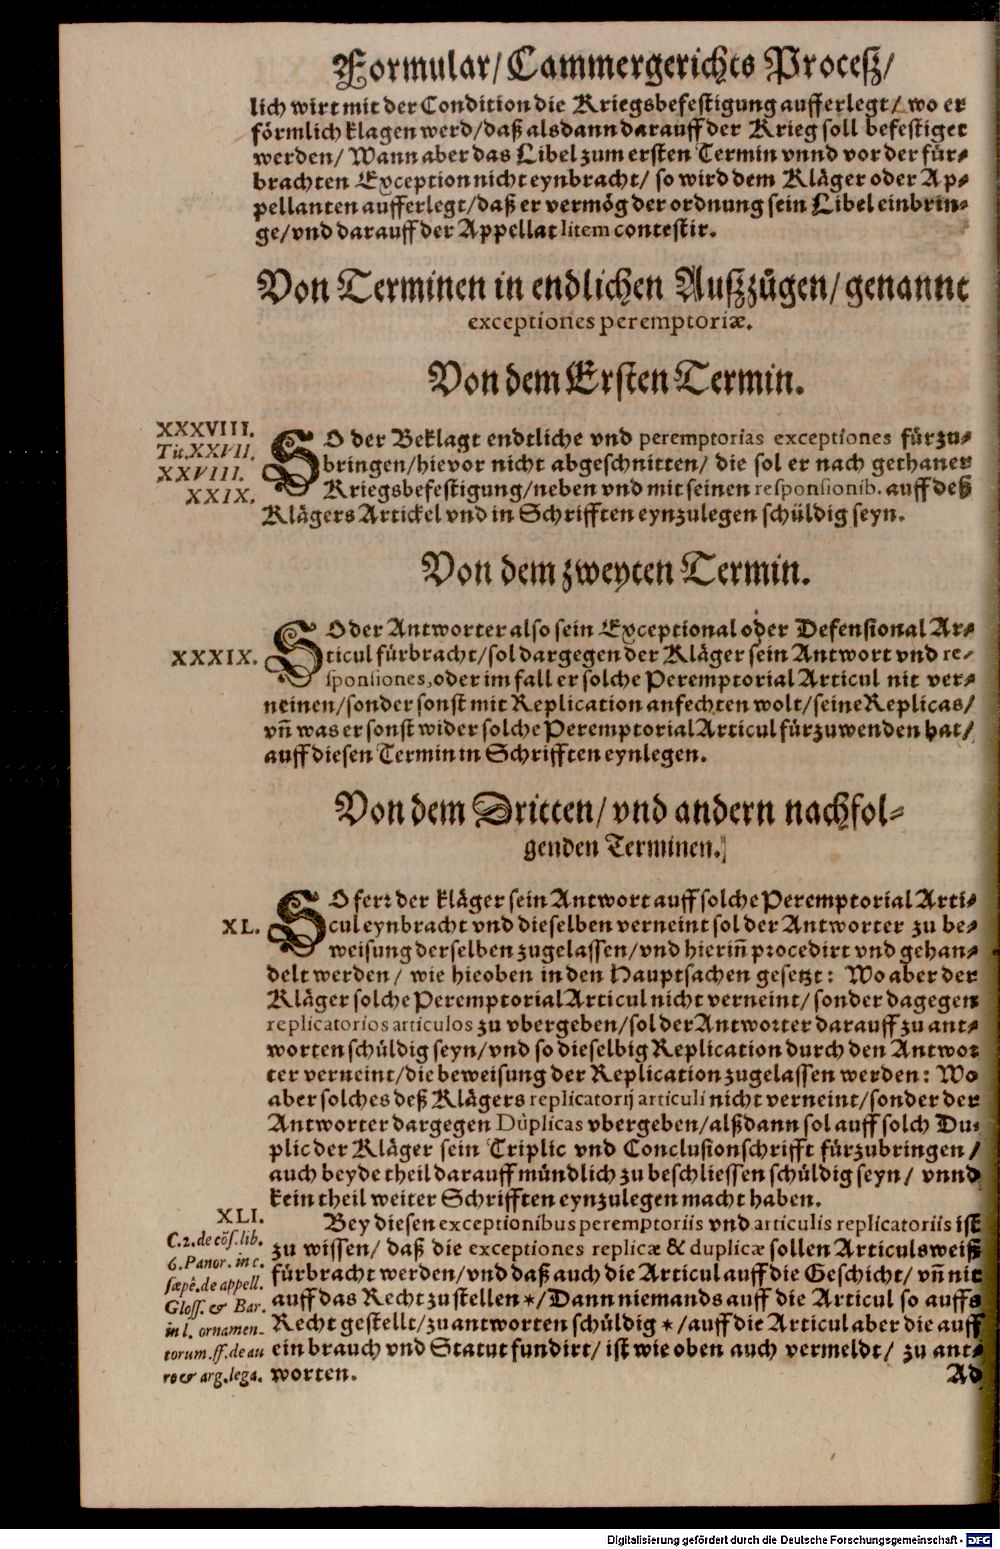 Formular/ Cammergerichts Proceß/
lich wirt mit der Condition die Kriegsbefestigung aufferlegt/ wo er
förmlich klagen werd/ daß alsdann darauff der Krieg soll befestiget
werden/ Wann aber das Libel zum ersten Termin vnnd vor der für-
brachten Exception nicht eynbracht/ so wird dem Kläger oder Ap-
pellanten aufferlegt/ daß er vermög der ordnung sein Libel einbrin-
ge/ vnd darauff der Appellat litem contestir.
Von Terminen in endlichen Außzügen/ genannt
exceptiones peremptoriæ.
Von dem Ersten Termin.
XXXVIII.
Tit. XXVII.
XXVIII.
XXIX.
SO der Beklagt endtliche vnd peremptorias exceptiones fürzu-
bringen/ hievor nicht abgeschnitten/ die sol er nach gethaner
Kriegsbefestigung/ neben vnd mit seinen responsionib. auff deß
Klägers Artickel vnd in Schrifften eynzulegen schüldig seyn.
Von dem zweyten Termin.
XXXIX.
SO der Antworter also sein Exceptional oder Defensional Ar-
ticul fürbracht/ sol dargegen der Kläger sein Antwort vnd re-
sponsiones, oder im fall er solche Peremptorial Articul nit ver-
neinen/ sonder sonst mit Replication anfechten wolt/ seine Replicas/
vñ was er sonst wider solche Peremptorial Articul fürzuwenden hat/
auff diesen Termin in Schrifften eynlegen.
Von dem Dritten/ vnd andern nachfol-
genden Terminen.
XL.
SO ferr der kläger sein Antwort auff solche Peremptorial Arti-
cul eynbracht vnd dieselben verneint sol der Antworter zu be-
weisung derselben zugelassen/ vnd hieriñ procedirt vnd gehan-
delt werden/ wie hieoben in den Hauptsachen gesetzt: Wo aber der
Kläger solche Peremptorial Articul nicht verneint/ sonder dagegen
replicatorios articulos zu vbergeben/ sol der Antworter darauff zu ant-
worten schüldig seyn/ vnd so dieselbig Replication durch den Antwor
ter verneint/ die beweisung der Replication zugelassen werden: Wo
aber solches deß Klägers replicatorij articuli nicht verneint/ sonder der
Antworter dargegen Duplicas vbergeben/ alßdann sol auff solch Du-
plic der Kläger sein Triplic vnd Conclusionschrifft fürzubringen/
auch beyde theil darauff mündlich zu beschliessen schüldig seyn/ vnnd
kein theil weiter Schrifften eynzulegen macht haben.
XLI.
C. 2. de cōs. lib.
6. Panor. in c.
sæpè. de appell.
Gloss. & Bar.
in l. ornamen-
torum. ff. de au
ro & arg. lega.
Bey diesen exceptionibus peremptoriis vnd articulis replicatoriis ist
zu wissen/ daß die exceptiones replicæ & duplicæ sollen Articulsweiß
fürbracht werden/ vnd daß auch die Articul auff die Geschicht/ vñ nit
auff das Recht zu stellen */ Dann niemands auff die Articul so auffs
Recht gestellt/ zu antworten schüldig */ auff die Articul aber die auff
ein brauch vnd Statut fundirt/ ist wie oben auch vermeldt/ zu ant-
worten.
Ad
Digitalisierung gefördert durch die Deutsche Forschungsgemeinschaft - DFG